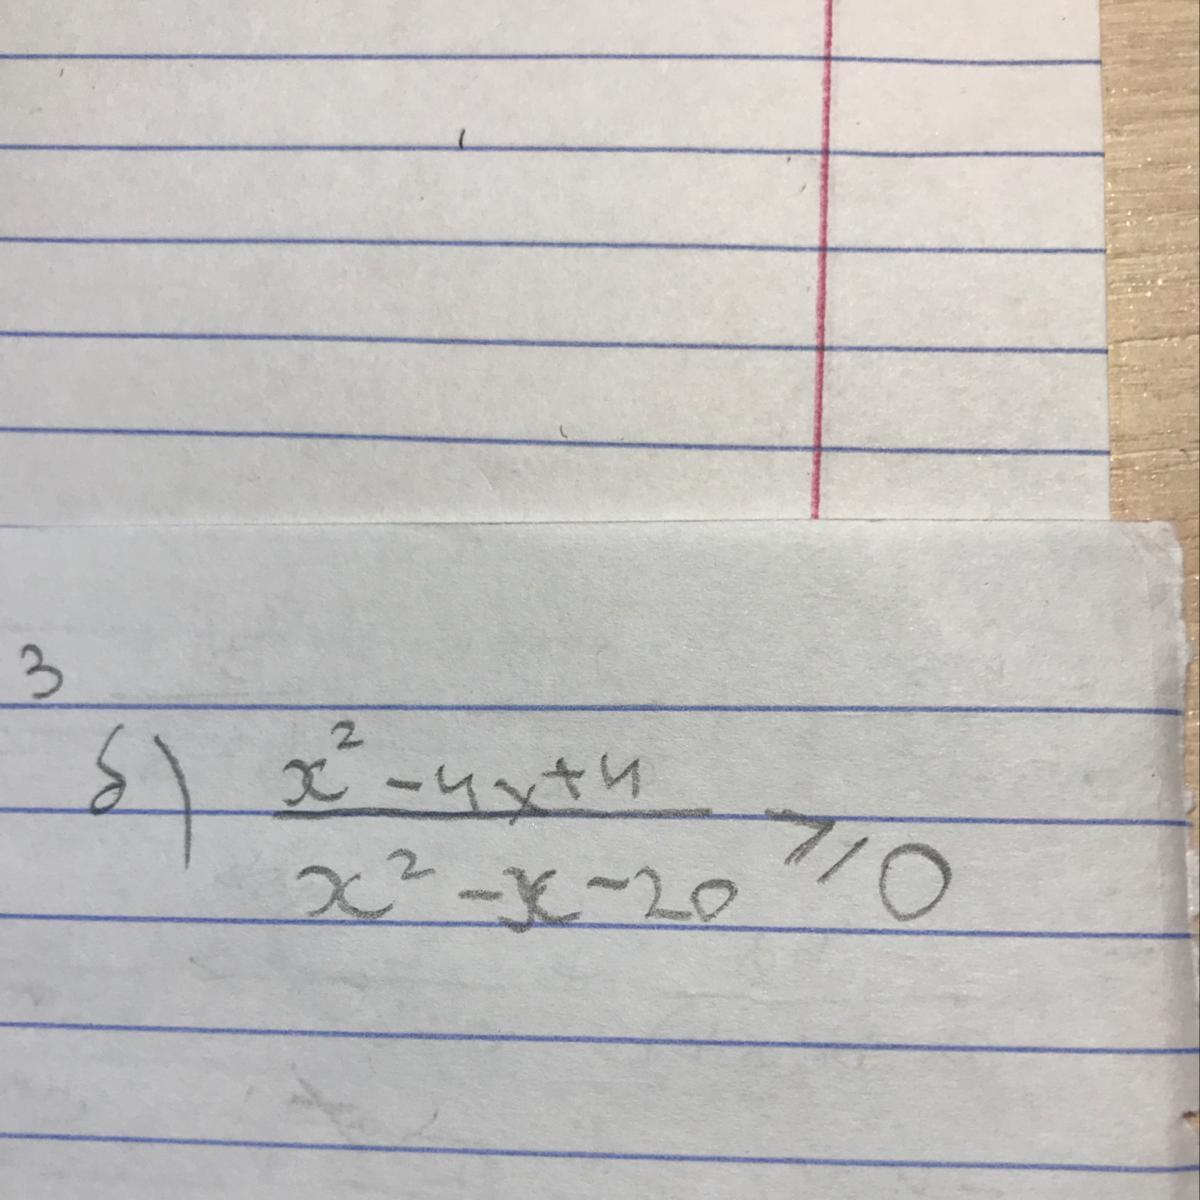 3
б) x² - 4x + 4
x² - x - 20 ⩾ 0